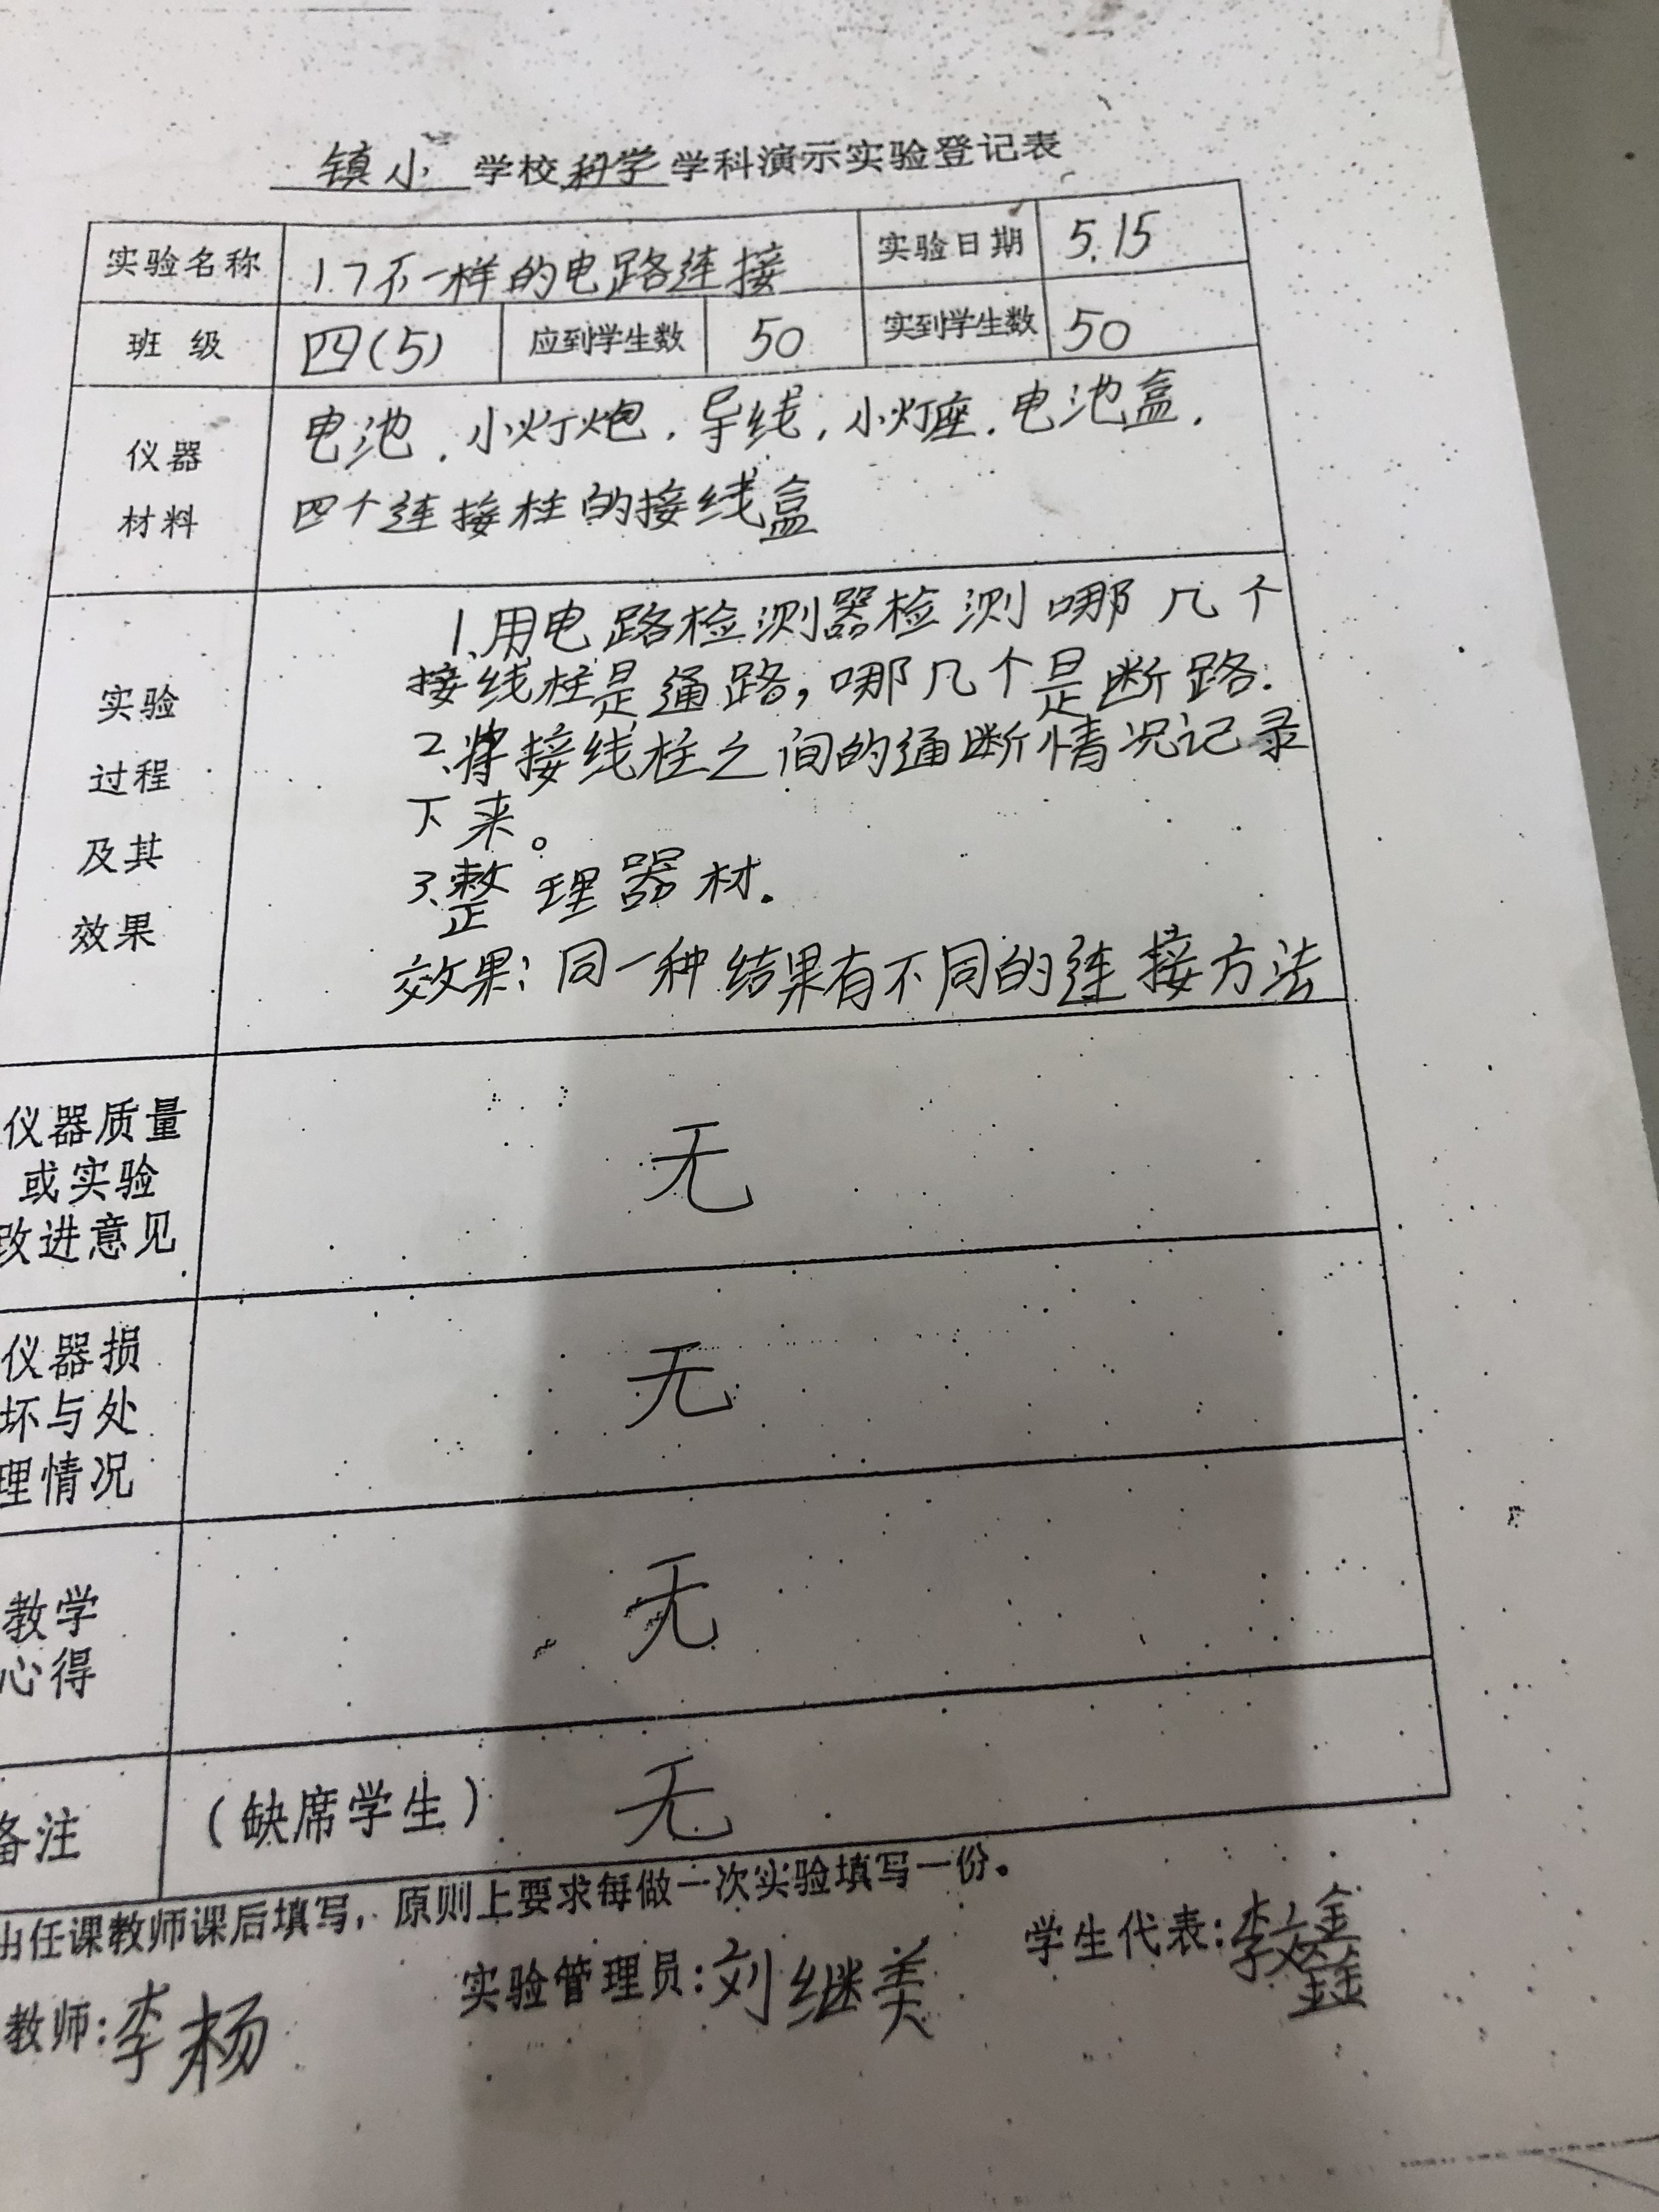 镇小 学校 科学 学科演示实验登记表
实验名称 1.7不一样的电路连接 实验日期 5.15
班 级 四(5) 应到学生数 50 实到学生数 50
仪器 电池.小灯炮.导线,小灯座.电池盒.
材料 四个连接柱的接线盒
1、用电路检测器检测哪几个
接线柱是通路,哪几个是断路.
2、将接线柱之间的通断情况记录
下来。
3、整理器材.
效果:同一种结果有不同的连接方法
实验
过程
及其
效果
仪器质量
或实验
改进意见
无
仪器损
坏与处
理情况
无
教学
心得
无
备注 (缺席学生) 无
由任课教师课后填写,原则上要求每做一次实验填写一份。
教师:李杨 实验管理员:刘继美 学生代表:李文鑫